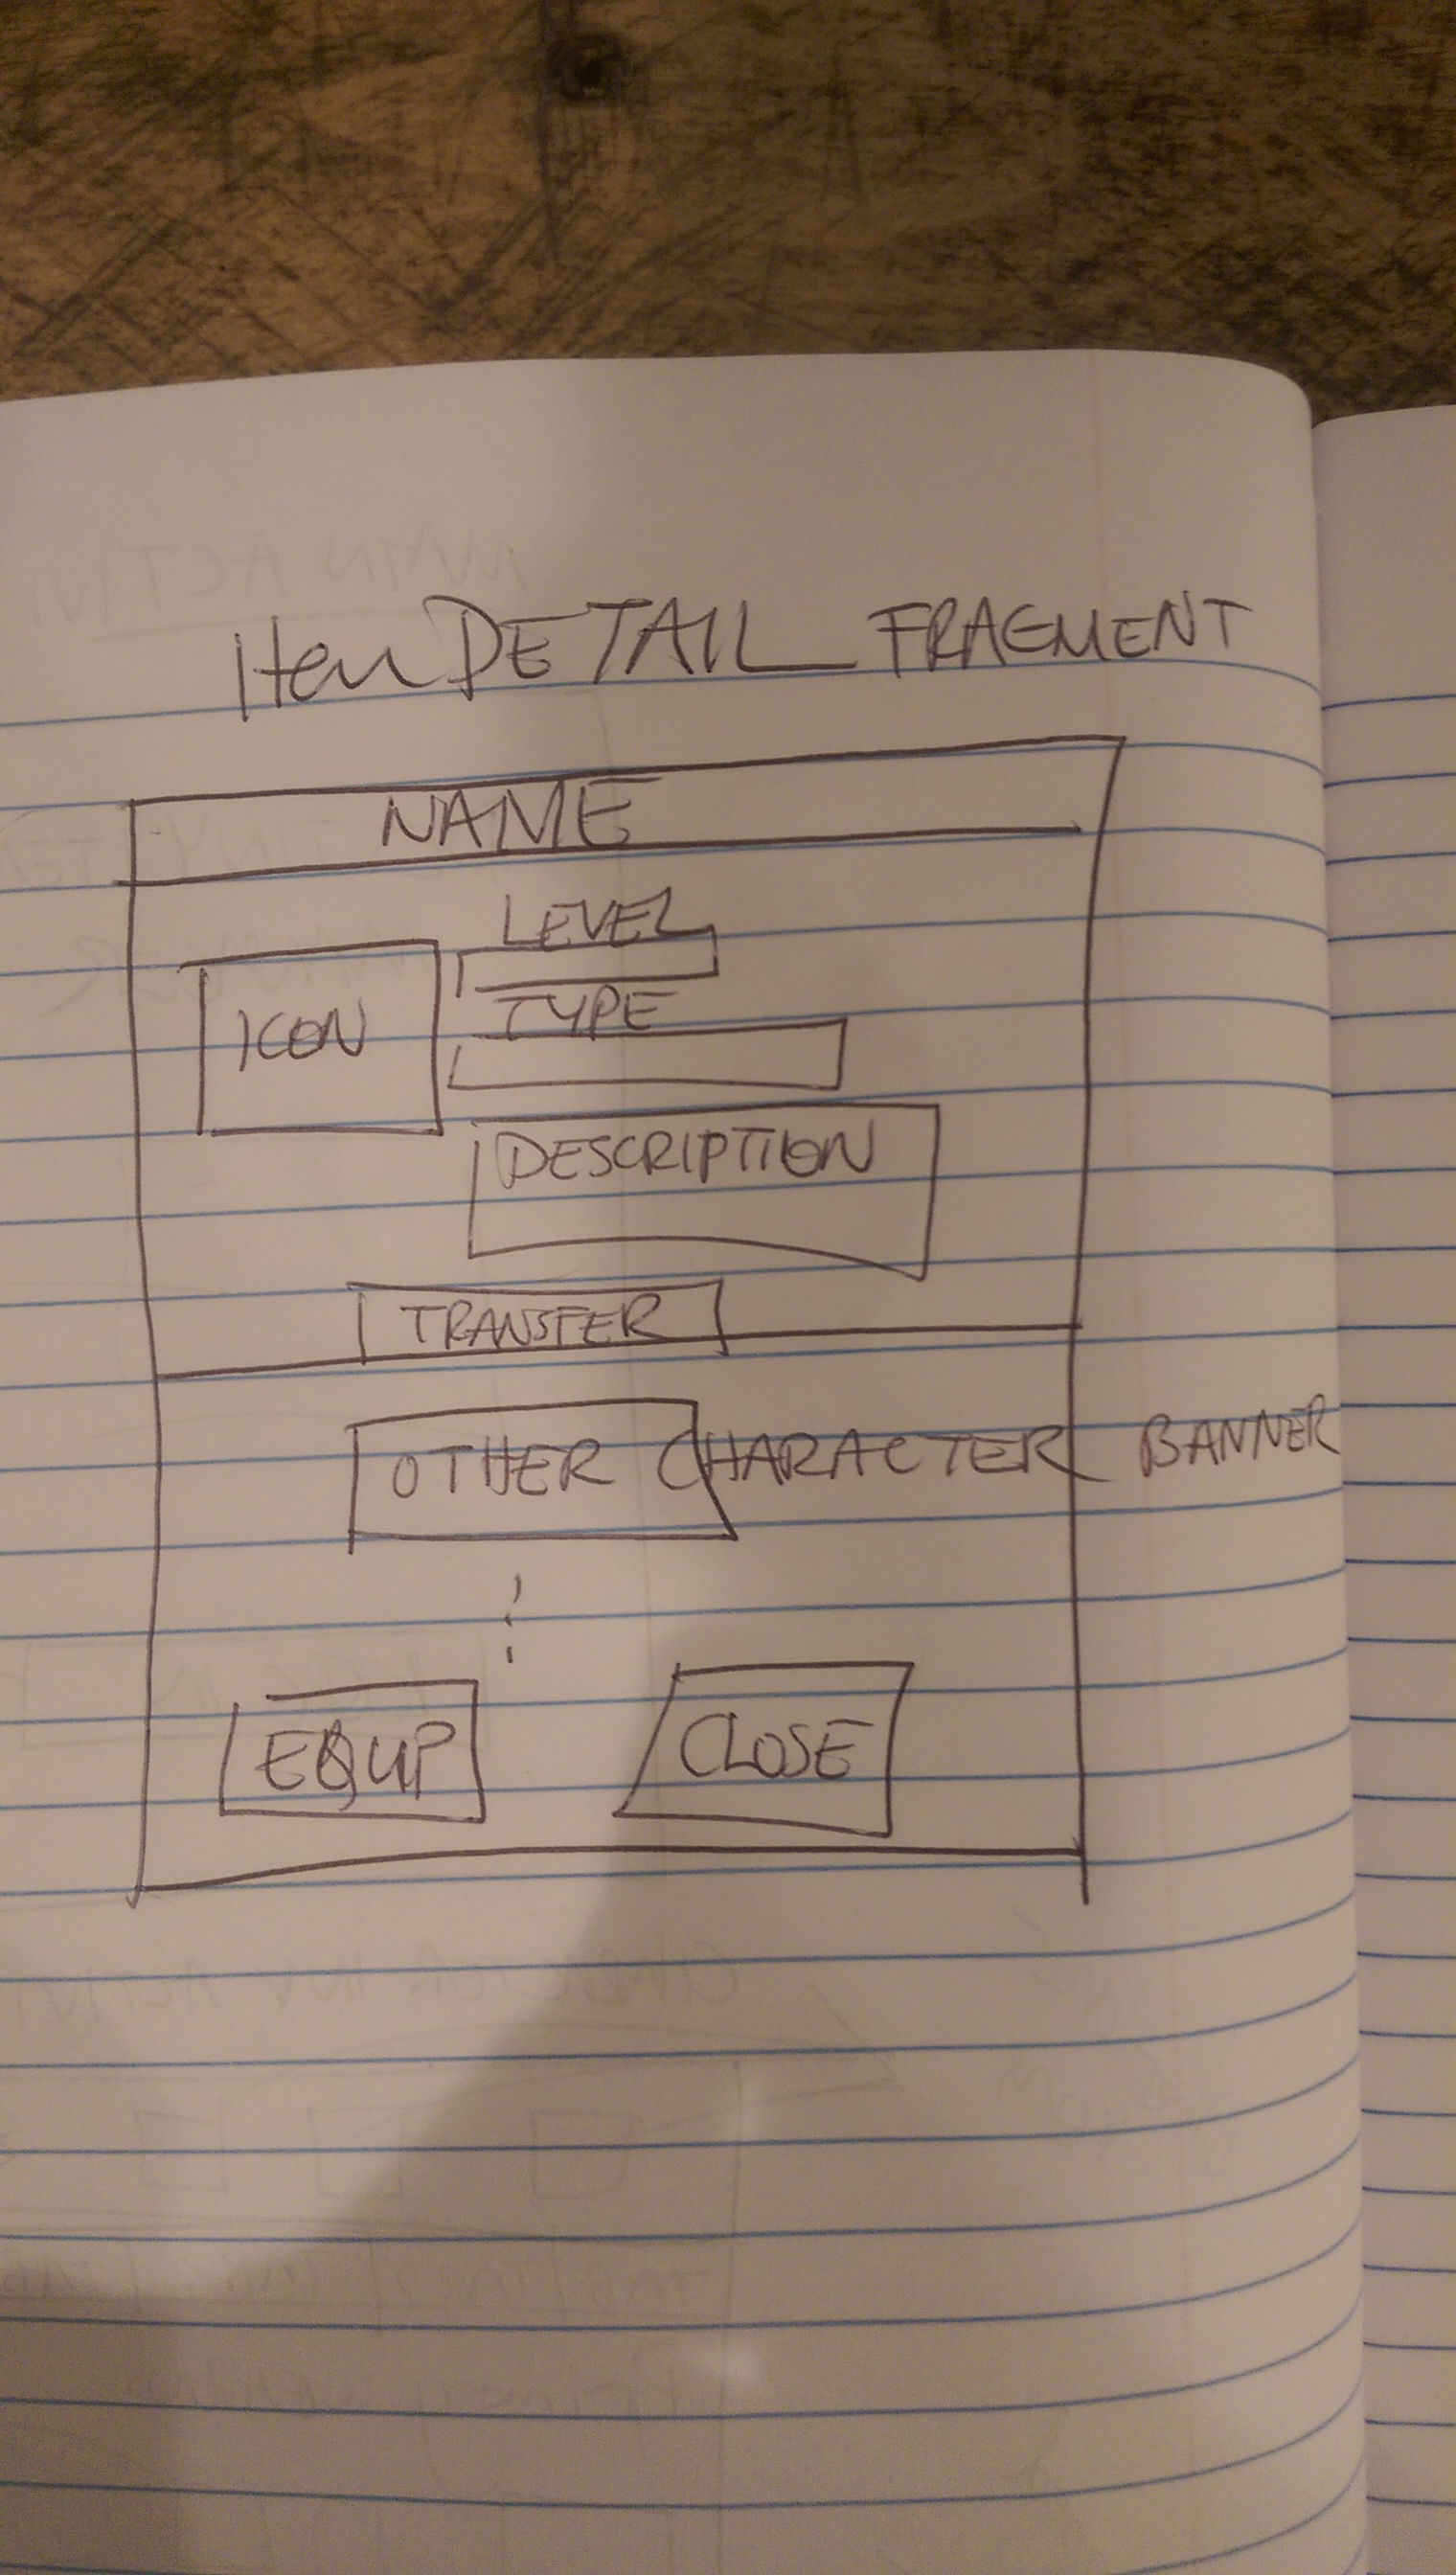 Item DETAIL FRAGMENT
NAME
LEVEL
ICON
TYPE
DESCRIPTION
TRANSFER
OTHER CHARACTER BANNER
EQUIP
CLOSE